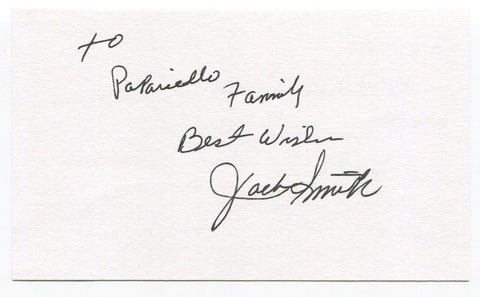 to
Papariello Family
Best Wishes
Jack Smith